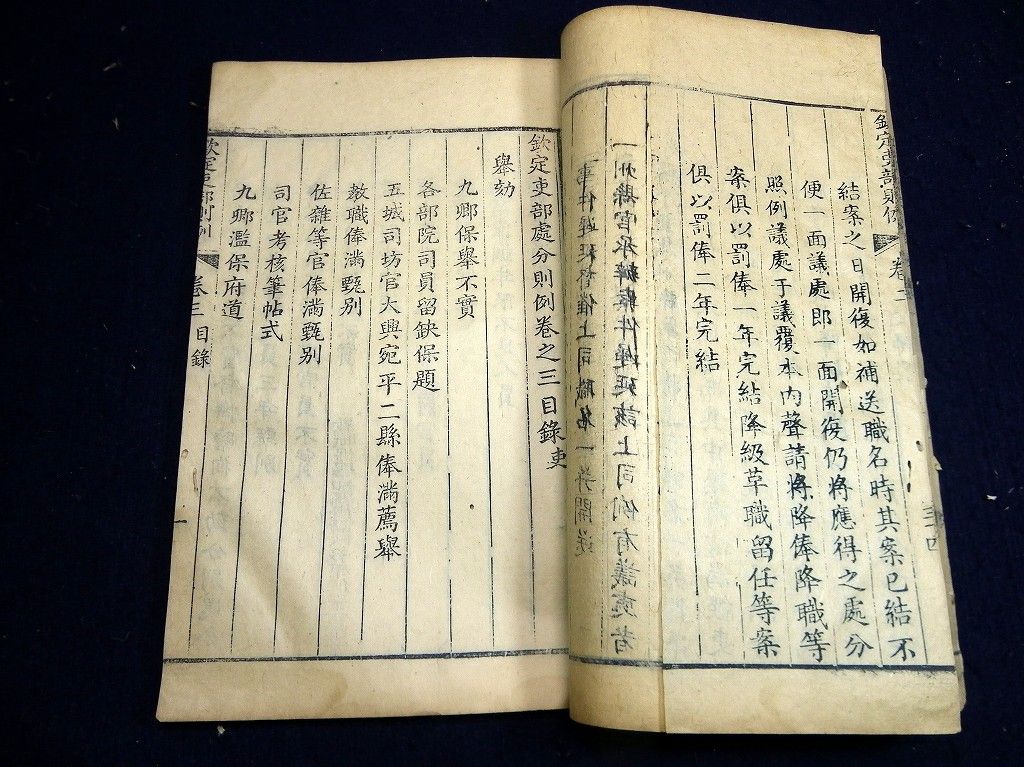 欽定吏部則例
卷二
結案之日開復如補送職名時其案已結不
便一面議處即一面開復仍將應得之處分
照例議處于議覆本內聲請將降俸降職等
案俱以罰俸一年完結降級革職留任等案
俱以罰俸二年完結
欽定吏部處分則例卷之三目錄吏
舉劾
九卿保舉不實
各部院司員留缺保題
五城司坊官大興宛平二縣俸滿薦舉
教職俸滿甄別
佐雜等官俸滿甄別
司官考核筆帖式
九卿濫保府道
欽定吏部則例
卷三 目錄